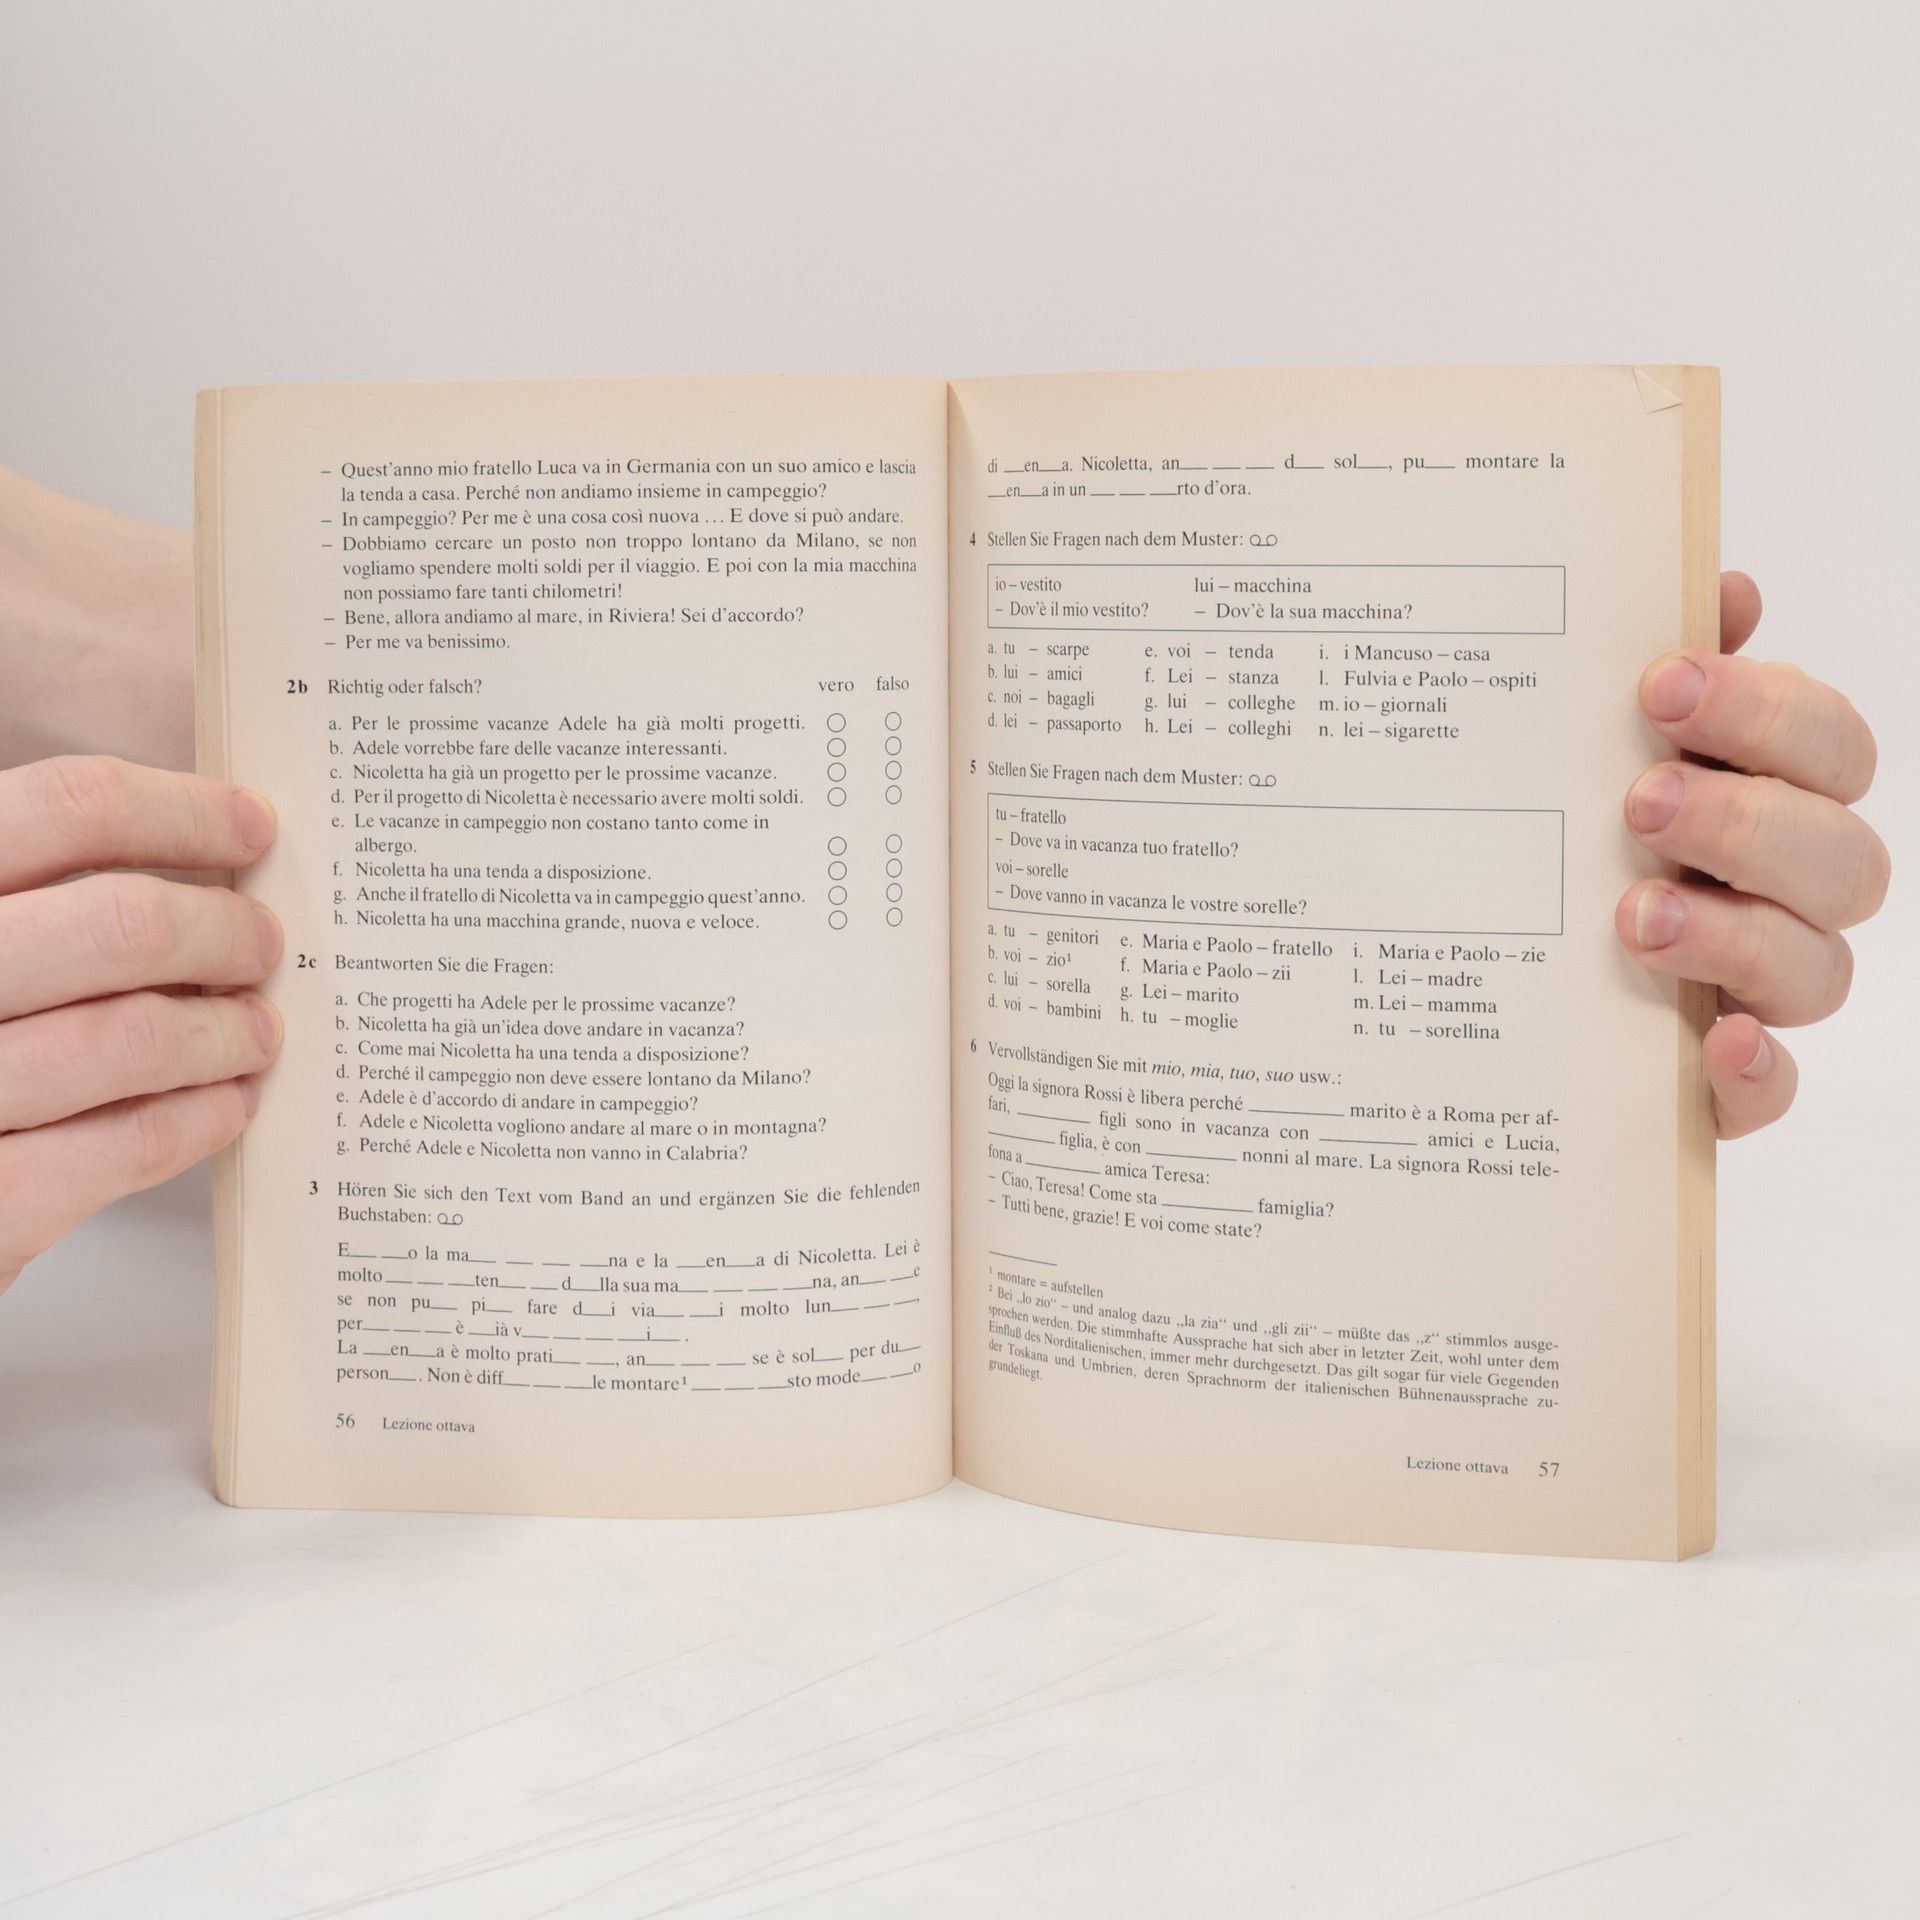 – Quest'anno mio fratello Luca va in Germania con un suo amico e lascia
la tenda a casa. Perché non andiamo insieme in campeggio?
– In campeggio? Per me è una cosa così nuova ... E dove si può andare.
– Dobbiamo cercare un posto non troppo lontano da Milano, se non
vogliamo spendere molti soldi per il viaggio. E poi con la mia macchina
non possiamo fare tanti chilometri!
– Bene, allora andiamo al mare, in Riviera! Sei d'accordo?
– Per me va benissimo.
2b Richtig oder falsch? vero falso
a. Per le prossime vacanze Adele ha già molti progetti. ○ ○
b. Adele vorrebbe fare delle vacanze interessanti. ○ ○
c. Nicoletta ha già un progetto per le prossime vacanze. ○ ○
d. Per il progetto di Nicoletta è necessario avere molti soldi. ○ ○
e. Le vacanze in campeggio non costano tanto come in
albergo. ○ ○
f. Nicoletta ha una tenda a disposizione. ○ ○
g. Anche il fratello di Nicoletta va in campeggio quest'anno. ○ ○
h. Nicoletta ha una macchina grande, nuova e veloce. ○ ○
2c Beantworten Sie die Fragen:
a. Che progetti ha Adele per le prossime vacanze?
b. Nicoletta ha già un'idea dove andare in vacanza?
c. Come mai Nicoletta ha una tenda a disposizione?
d. Perché il campeggio non deve essere lontano da Milano?
e. Adele è d'accordo di andare in campeggio?
f. Adele e Nicoletta vogliono andare al mare o in montagna?
g. Perché Adele e Nicoletta non vanno in Calabria?
3 Hören Sie sich den Text vom Band an und ergänzen Sie die fehlenden
Buchstaben:
E__ __o la ma__ __ __ __na e la __en__a di Nicoletta. Lei è
molto __ __ __ten__ __ d__lla sua ma__ __ __ __na, an__ __e
se non pu__ pi__ fare d__i via__ __i molto lun__ __ __,
per__ __ __ è __ià v__ __ __ __i__.
La __en__a è molto prati__ __, an__ __ __ se è sol__ per du__
person__. Non è diff__ __ __le montare¹ __ __ __sto mode__ __o
56 Lezione ottava
di __en__a. Nicoletta, an__ __ __ d__ sol__, pu__ montare la
__en__a in un __ __ __rto d'ora.
4 Stellen Sie Fragen nach dem Muster:
io – vestito lui – macchina
– Dov'è il mio vestito? – Dov'è la sua macchina?
a. tu – scarpe e. voi – tenda i. i Mancuso – casa
b. lui – amici f. Lei – stanza l. Fulvia e Paolo – ospiti
c. noi – bagagli g. lui – colleghe m. io – giornali
d. lei – passaporto h. Lei – colleghi n. lei – sigarette
5 Stellen Sie Fragen nach dem Muster:
tu – fratello
– Dove va in vacanza tuo fratello?
voi – sorelle
– Dove vanno in vacanza le vostre sorelle?
a. tu – genitori e. Maria e Paolo – fratello i. Maria e Paolo – zie
b. voi – zio¹ f. Maria e Paolo – zii l. Lei – madre
c. lui – sorella g. Lei – marito m. Lei – mamma
d. voi – bambini h. tu – moglie n. tu – sorellina
6 Vervollständigen Sie mit mio, mia, tuo, suo usw.:
Oggi la signora Rossi è libera perché ________ marito è a Roma per af-
fari, ________ figli sono in vacanza con ________ amici e Lucia,
________ figlia, è con ________ nonni al mare. La signora Rossi tele-
fona a ________ amica Teresa:
– Ciao, Teresa! Come sta ________ famiglia?
– Tutti bene, grazie! E voi come state?
¹ montare = aufstellen
² Bei „lo zio“ – und analog dazu „la zia“ und „gli zii“ – müßte das „z“ stimmlos ausge-
sprochen werden. Die stimmhafte Aussprache hat sich aber in letzter Zeit, wohl unter dem
Einfluß des Norditalienischen, immer mehr durchgesetzt. Das gilt sogar für viele Gegenden
der Toskana und Umbrien, deren Sprachnorm der italienischen Bühnenaussprache zu-
grundeliegt.
Lezione ottava 57